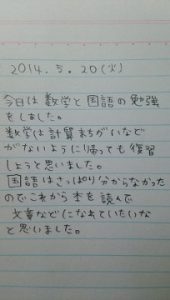 2014.5.20(火)
今日は数学と国語の勉強
をしました。
数学は計算まちがいなど
がないように帰っても復習
しようと思いました。
国語はさっぱり分からなかった
のでこれから本を読んで
文章などになれていたいな
と思いました。